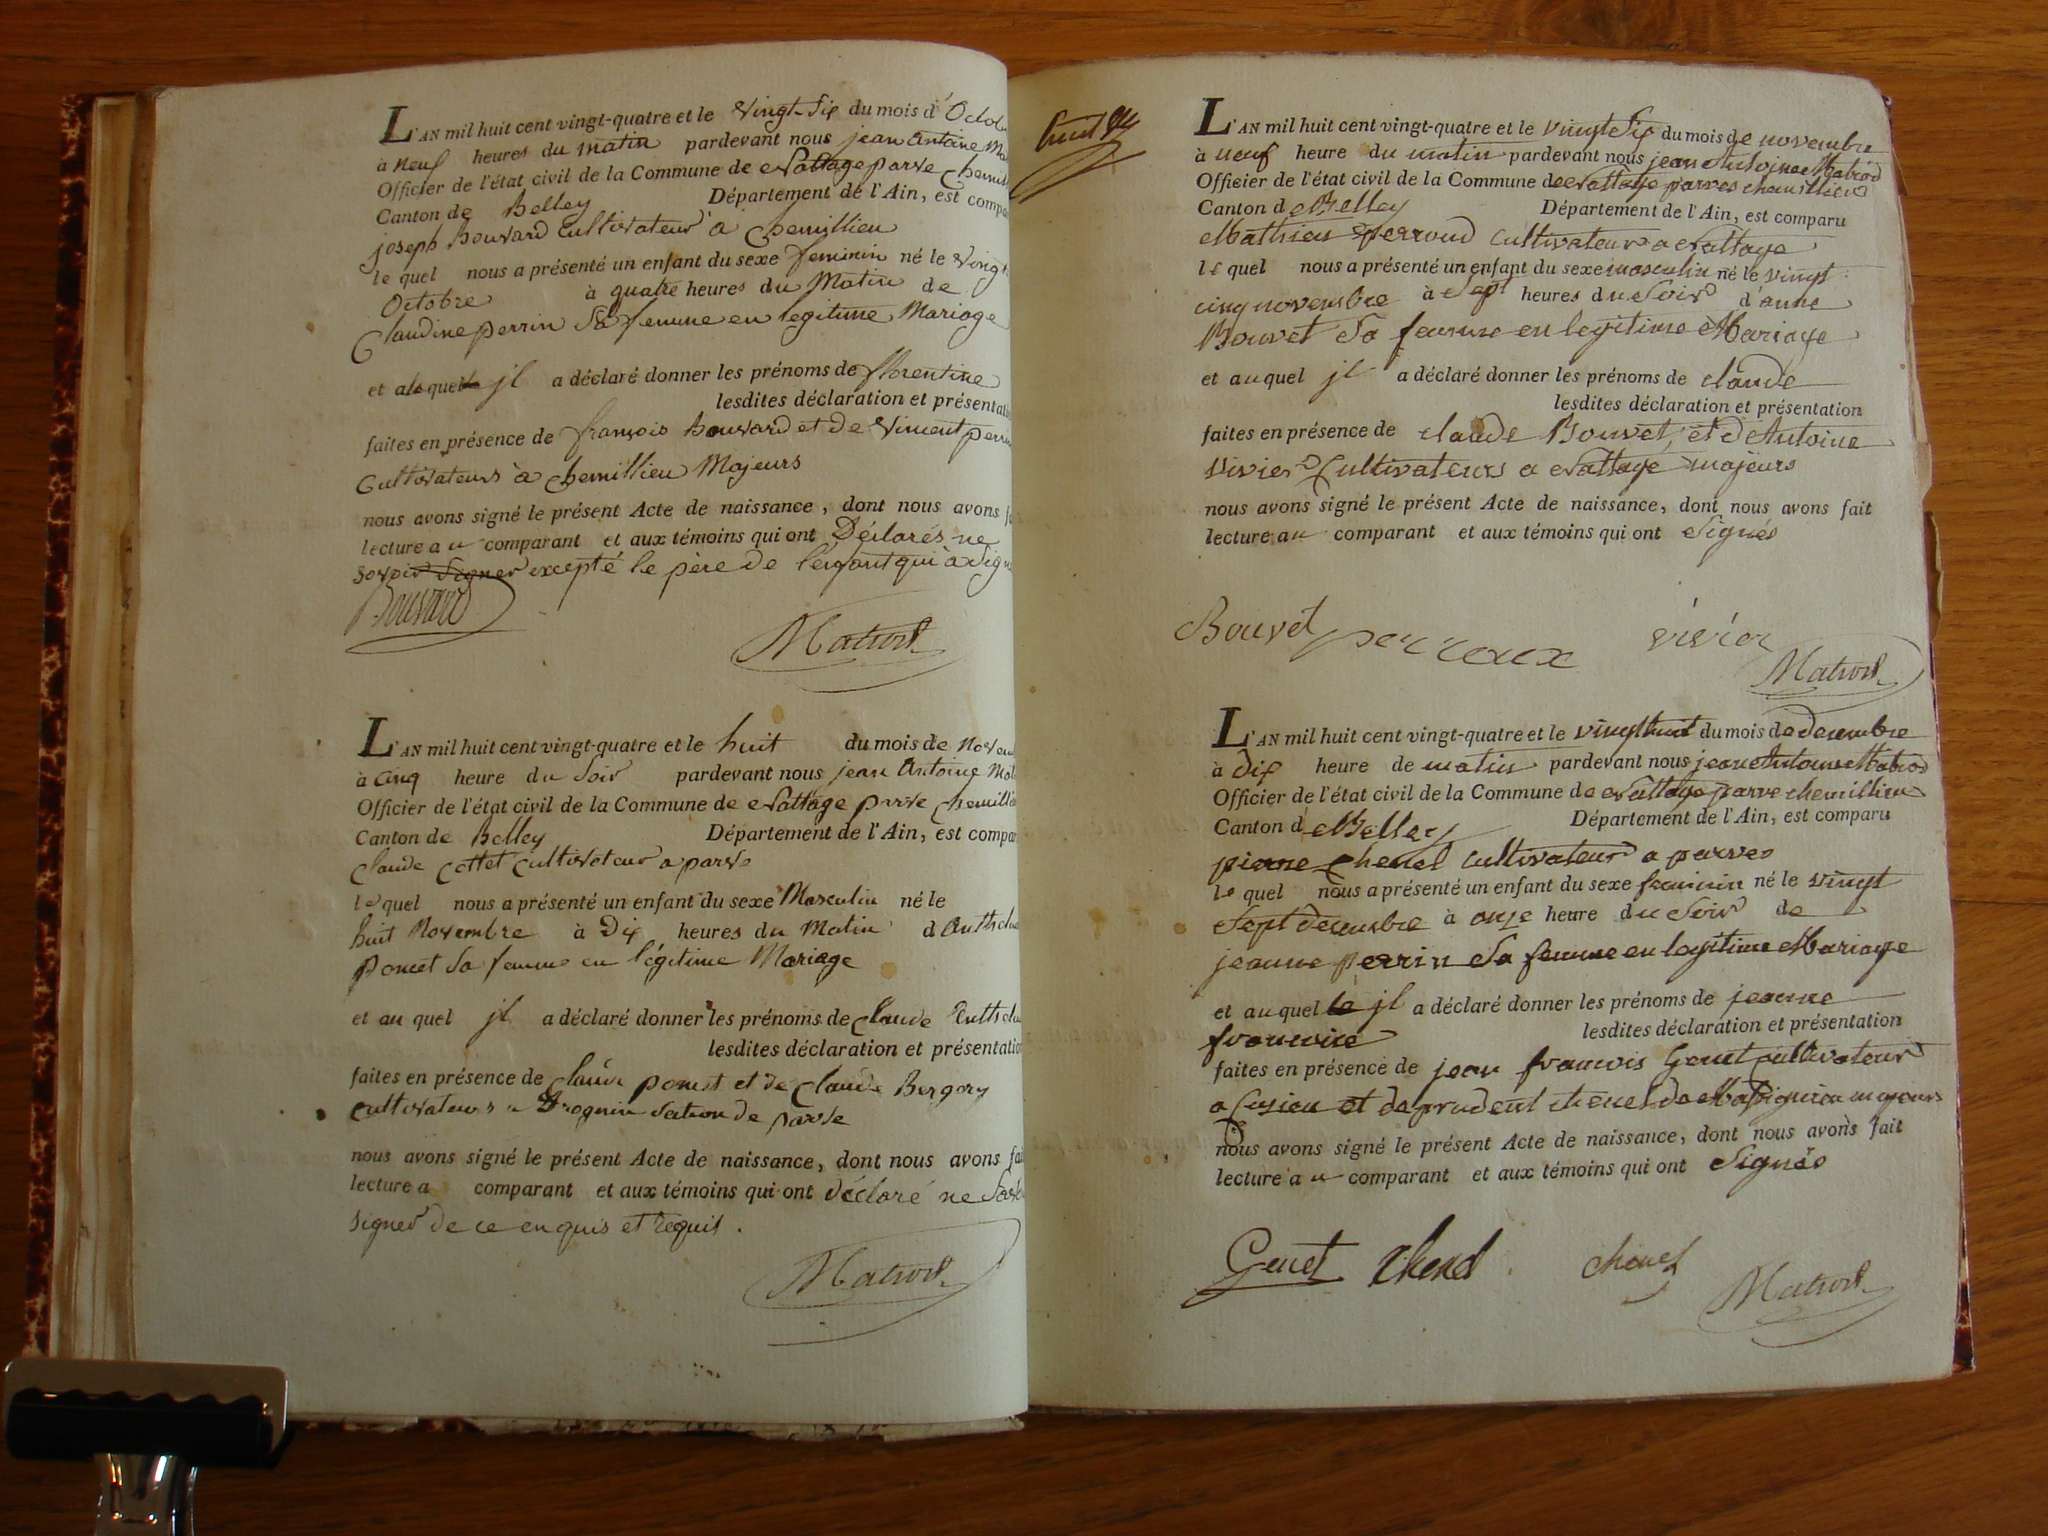 L'AN mil huit cent vingt-quatre et le vingt-six du mois d'Octob
à neuf heures du matin pardevant nous jean antoine Ma
Officier de l'état civil de la Commune de Nattage parve chemill
Canton de Belley Département de l'Ain, est compa
joseph Bouvard Cultivateur à chemillieu
le quel nous a présenté un enfant du sexe feminin né le vingt
Octobre à quatre heures du Matin de
Claudine perrin Sa femme en legitime Mariage
et quel jl a déclaré donner les prénoms de florentine
lesdites déclaration et présentat
faites en présence de françois Bouvard et de Vincent perri
Cultivateurs à chemillieu Majeurs
nous avons signé le présent Acte de naissance, dont nous avons f
lecture au comparant et aux témoins qui ont Déclarés ne
savoir signer excepté le père de l'enfant qui à Sign
Bouvard
Matrod
L'AN mil huit cent vingt-quatre et le huit du mois de Novem
à cinq heure du Soir pardevant nous jean Antoine Mat
Officier de l'état civil de la Commune de Nattage parve chemillie
Canton de Belley Département de l'Ain, est compar
claude Cottet cultivateur a parve
le quel nous a présenté un enfant du sexe Masculin né le
huit Novembre à Dix heures du Matin d'Anthel
Poncet Sa femme en légitime Mariage
et au quel jl a déclaré donner les prénoms de Claude Anthel
lesdites déclaration et présentatio
faites en présence de Claude poncet et de Claude Bergery
Cultivateurs a de parve
nous avons signé le présent Acte de naissance, dont nous avons fai
lecture a comparant et aux témoins qui ont déclaré ne Savoi
signer de ce enquis et requis.
Matrod
L'AN mil huit cent vingt-quatre et le vingt Six du mois de novembre
à neuf heure du matin pardevant nous jean Antoine Matrod
Officier de l'état civil de la Commune de Nattage parves chemillieu
Canton de Belley Département de l'Ain, est comparu
Mathieu perroud cultivateur a Nattage
le quel nous a présenté un enfant du sexe masculin né le vingt
cinq novembre à Sept heures du Soir d'anne
Bouvet Sa femme en legitime Mariage
et au quel jl a déclaré donner les prénoms de claude
lesdites déclaration et présentation
faites en présence de claude Bouvet, et d'Antoine
vivier Cultivateurs a Nattage majeurs
nous avons signé le présent Acte de naissance, dont nous avons fait
lecture au comparant et aux témoins qui ont Signés
Bouvet perroux vivier
Matrod
L'AN mil huit cent vingt-quatre et le vingt huit du mois de decembre
à Dix heure de matin pardevant nous jean Antoine Matrod
Officier de l'état civil de la Commune de Nattage parve chemillieu
Canton d Belley Département de l'Ain, est comparu
pierre chenel cultivateur a parves
le quel nous a présenté un enfant du sexe feminin né le vingt
Sept decembre à onze heure du Soir de
jeanne perrin Sa femme en legitime Mariage
et au quel jl a déclaré donner les prénoms de jeanne
francoise lesdites déclaration et présentation
faites en présence de jean francois Genet cultivateur
a Cusieu et de prudent chenel de Massignieu majeurs
nous avons signé le présent Acte de naissance, dont nous avons fait
lecture au comparant et aux témoins qui ont Signés
Genet chenel chenel
Matrod